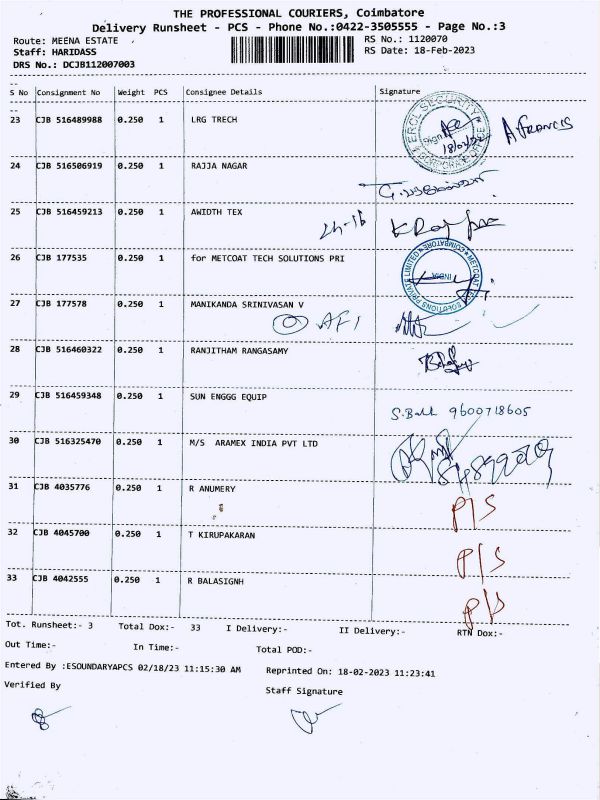 THE PROFESSIONAL COURIERS, Coimbatore
Delivery Runsheet - PCS - Phone No.:0422-3505555 - Page No.:3
Route: MEENA ESTATE RS No.: 1120070
Staff: HARIDASS RS Date: 18-Feb-2023
DRS No.: DCJB112007003
S No Consignment No Weight PCS Consignee Details Signature
23 CJB 516489988 0.250 1 LRG TRECH
18/02/23 A.FRANCIS
24 CJB 516506919 0.250 1 RAJJA NAGAR
25 CJB 516459213 0.250 1 AWIDTH TEX
26 CJB 177535 0.250 1 for METCOAT TECH SOLUTIONS PRI
INDIA
27 CJB 177578 0.250 1 MANIKANDA SRINIVASAN V
AFI
28 CJB 516460322 0.250 1 RANJITHAM RANGASAMY
29 CJB 516459348 0.250 1 SUN ENGGG EQUIP
9600718605
30 CJB 516325470 0.250 1 M/S ARAMEX INDIA PVT LTD
31 CJB 4035776 0.250 1 R ANUMERY
P/S
32 CJB 4045700 0.250 1 T KIRUPAKARAN
P/S
33 CJB 4042555 0.250 1 R BALASIGNH
P/S
Tot. Runsheet:- 3 Total Dox:- 33 I Delivery:- II Delivery:- RTN Dox:-
Out Time:- In Time:- Total POD:-
Entered By :ESOUNDARYAPCS 02/18/23 11:15:30 AM Reprinted On: 18-02-2023 11:23:41
Verified By Staff Signature